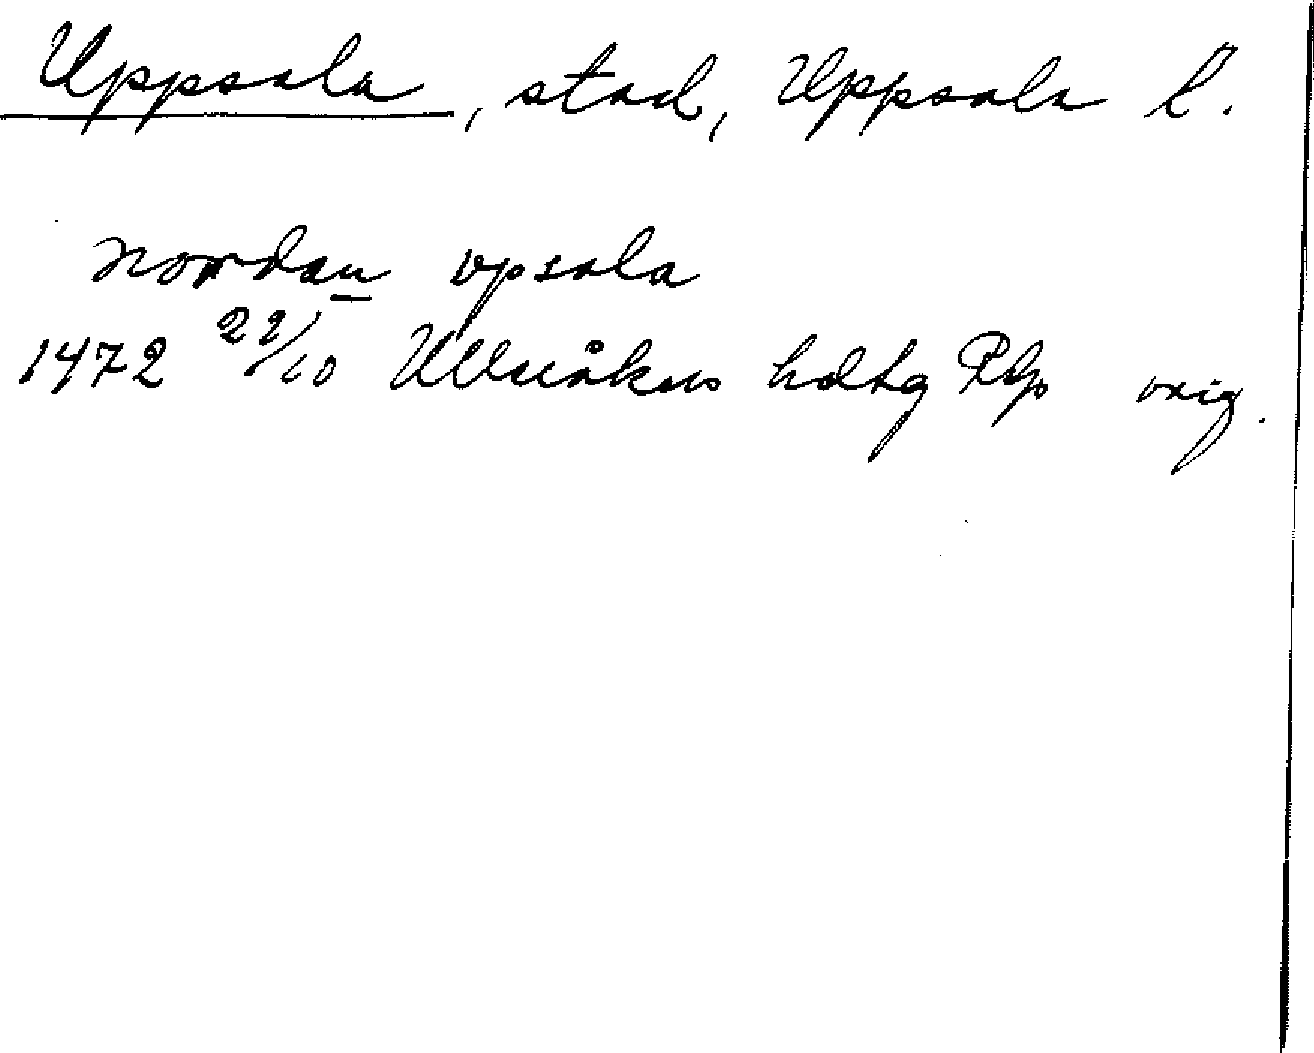 Uppsala, stad, Uppsala l.
nordan vpsala
1472 22/10 Ulleråkers hdhg Rp orig.